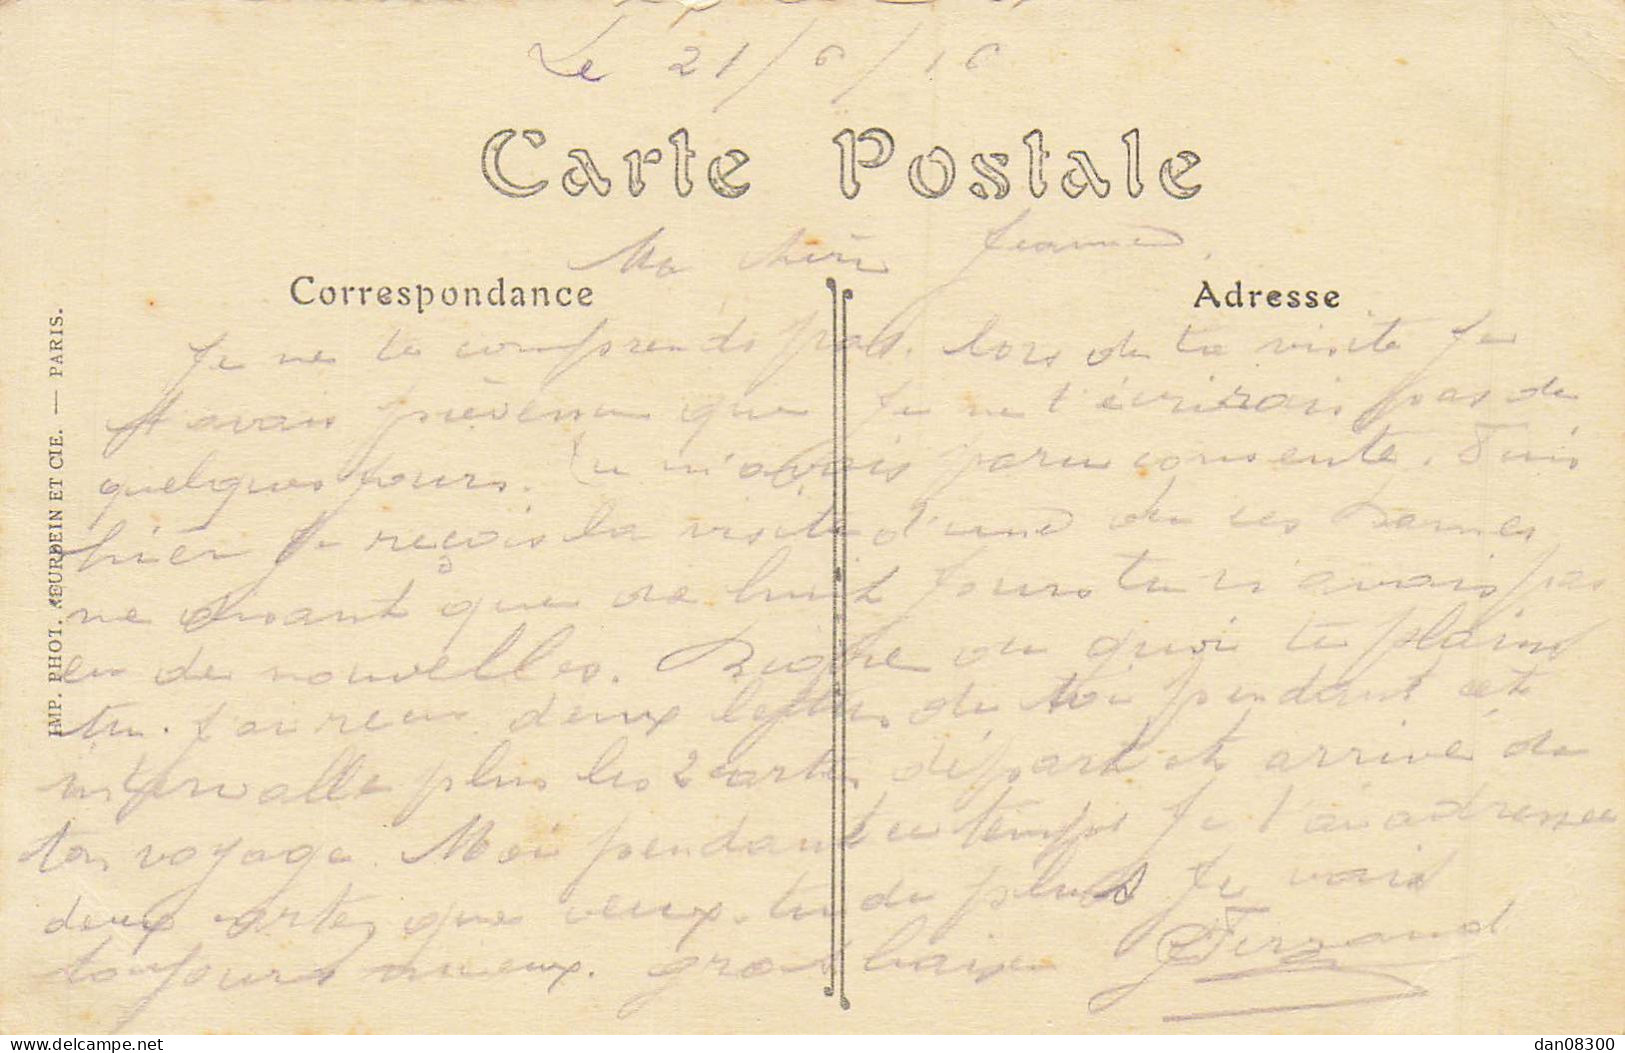 Le 21/6/16
Carte Postale
Ma chère Jeanne
Correspondance
Adresse
Je ne te comprends pas. lors de ta visite Je
t'avais prévenu que Je ne t'écrirais pas de
quelques jours. Tu m'avais paru consente. Puis
hier Je reçois la visite d'une de ces Dames
me disant que de huit jours tu n'avais pas
eu de nouvelles. Bigre de quoi te plains
tu. J'ai recu deux lettres de toi pendant cet
intervalle plus les 2 cartes départ et arrivé de
ton voyage. Moi pendant ce temps Je t'ai adressée
deux cartes que veux-tu de plus Je vais
toujours mieux. gros baiser Fernand
IMP. PHOT. NEURDEIN ET CIE. — PARIS.
delcampe.net
dan08300